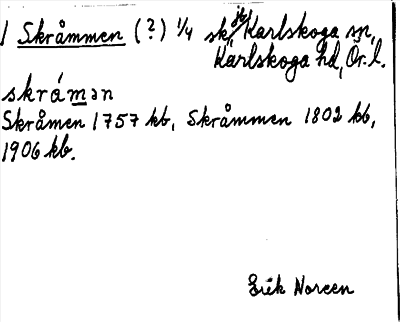 / Skråmmen (?) 1/4 sk, jb Karlskoga sn,
Karlskoga hd, Ör. l.
skråmən
Skråmen 1757 kb, Skråmmen 1802 kb,
1906 kb.
Erik Noreen